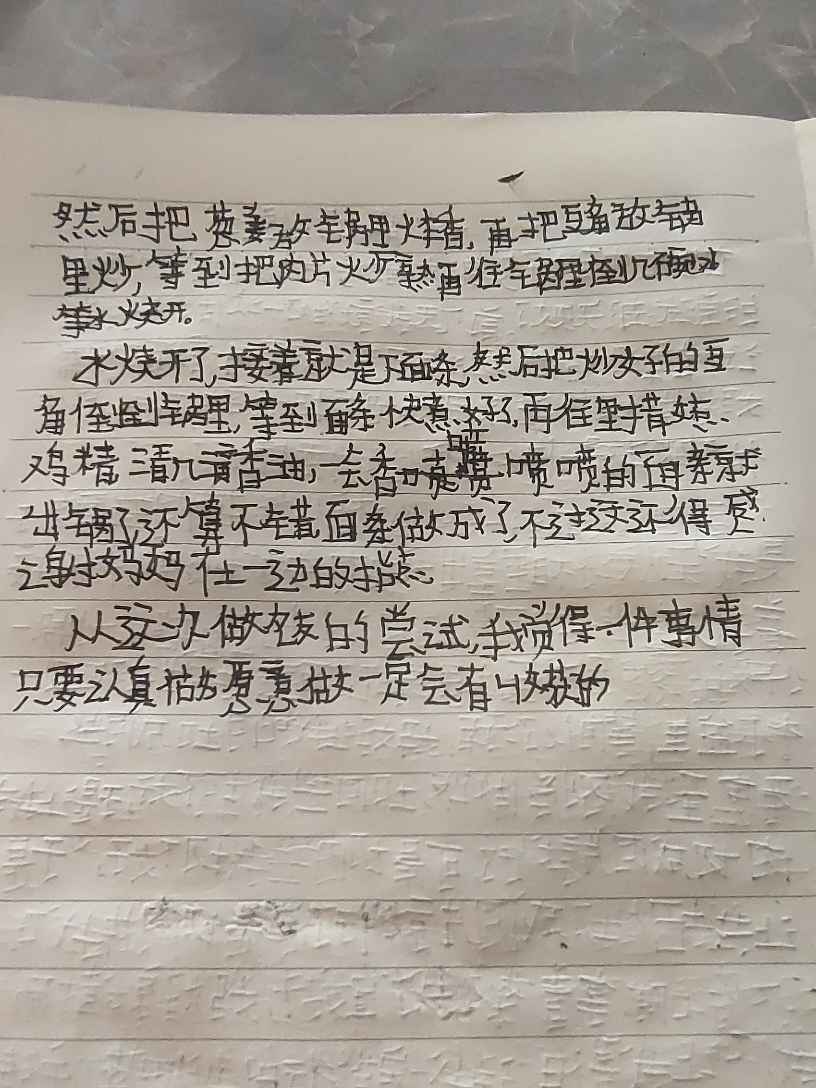 然后把葱姜放锅里火香,再把豆角放锅
里炒,等到把肉片炒熟再往锅里倒几碗水
等水烧开。
水烧开了,接着就是下面条,然后把炒好的豆
角倒到锅里,等到面条快煮好了,再往里措点
鸡精 滴几滴香油,一会香喷喷的面条就
出锅了,还算不错面条做成了,不过这还得感
谢妈妈在一边的指点
从这次做饭的尝试,我觉得一件事情
只要认真做好愿意做一定会有收获的